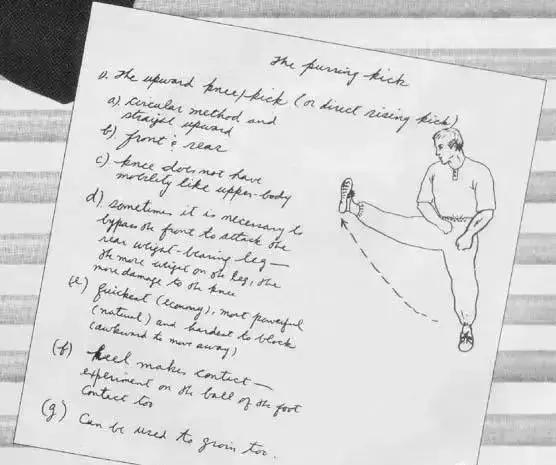 The purring kick
1. The upward knee/kick (or direct rising kick)
a) circular method and
straight upward
b) front & rear
c) knee does not have
mobility like upper-body
d) sometimes it is necessary to
bypass the front to attack the
rear weight-bearing leg—
the more weight on the leg, the
more damage to the knee
(e) quickest (economy), most powerful
(natural) and hardest to block
(awkward to move away)
(f) heel makes contact—
experiment on the ball of the foot
contact too
(g) Can be used to groin too.